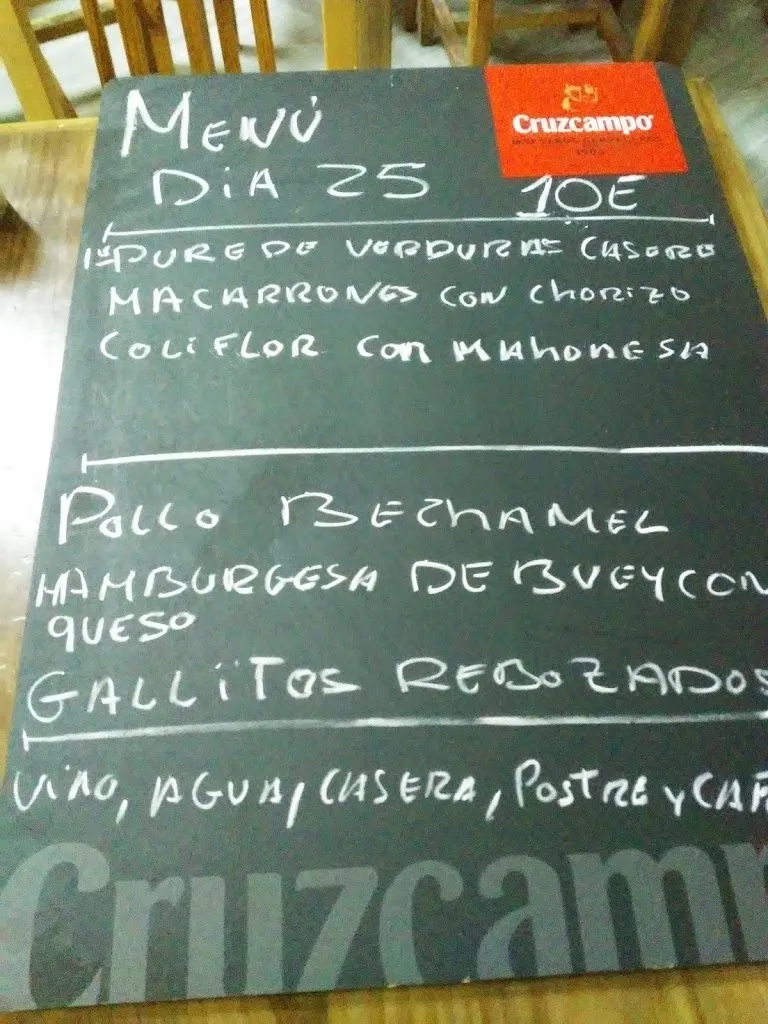 MENÚ
Cruzcampo
DiA 25 10E
1º PURE DE VERDURAS CASERO
MACARRONES CON ChORIZO
COLiFLOR Con MAhONESA
POLLO BEChAMEL
HAMBURGESA DE BUEY CON
QUESO
GALLiTOS REBOZADOS
ViNO, AGUA, CASERA, POSTRE Y CAF
Cruzcamp